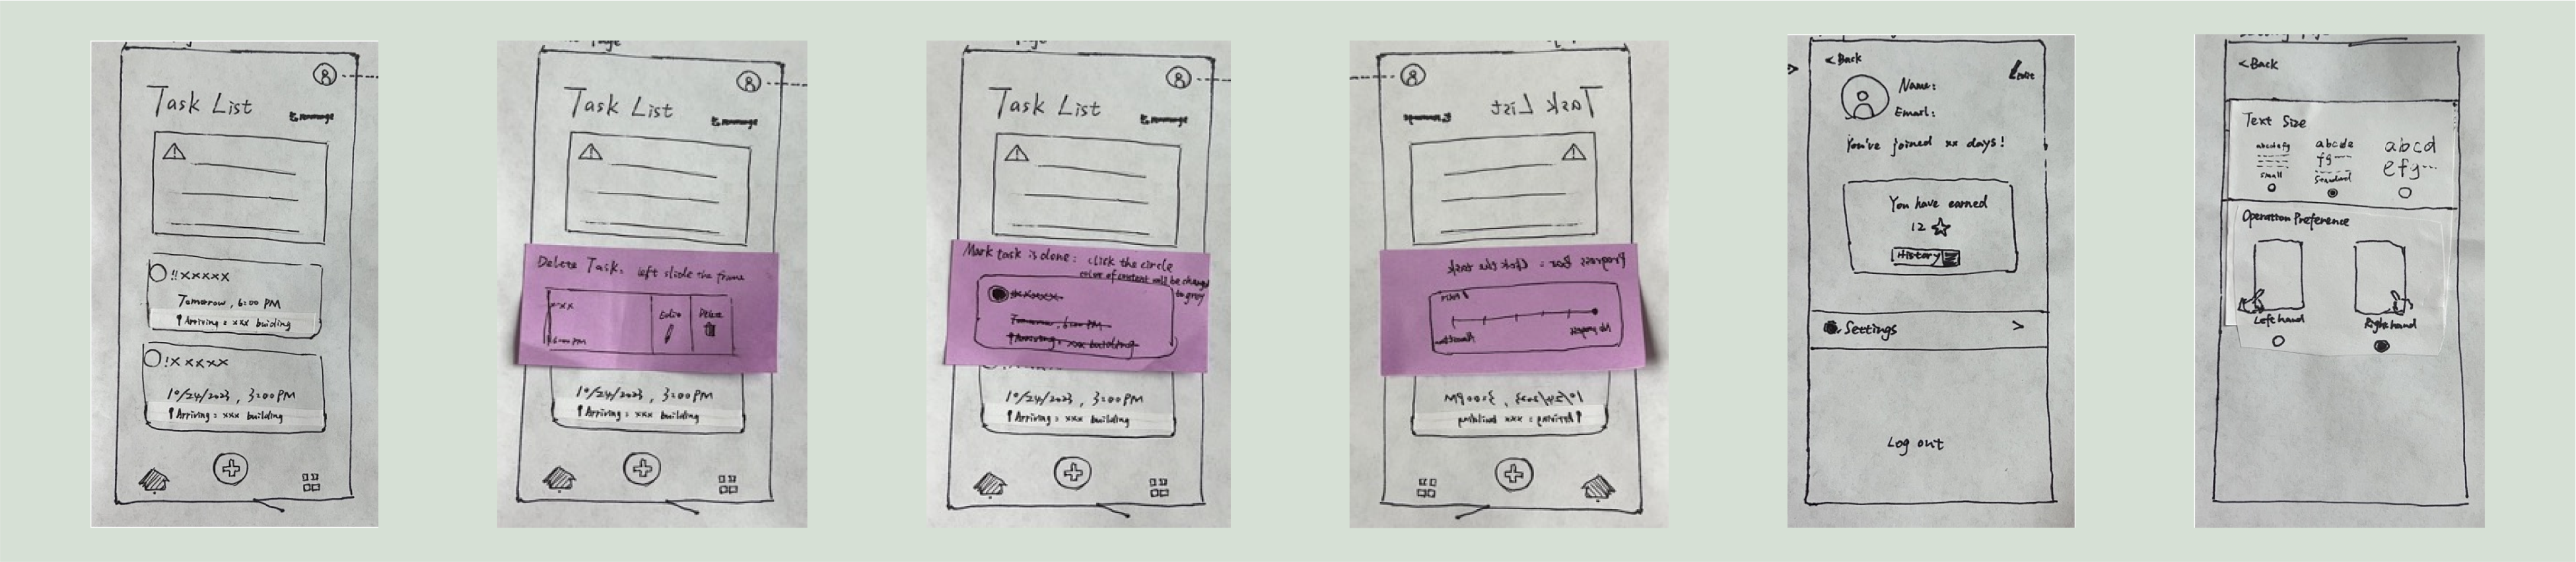 Task List
!!xxxxx
Tomorrow, 6:00 PM
Arriving: xxx buiding
!xxxxx
10/24/2023, 3:00 PM
Arriving: xxx building
Task List
Delete Task: left slide the frame
Delete
6:00 PM
10/24/2023, 3:00 PM
Arriving: xxx building
Page
Task List
Mark task is done: click the circle
color of content will be changed
to grey
xxxxx
Tomorrow, 6:00 PM
Arriving: xxx building
10/24/2023, 3:00 PM
Arriving: xxx building
Task List
Progress Bar: Click the task
No progress
10/24/2023, 3:00 PM
Arriving: xxx building
<Back
Name:
Email:
You've joined xx days!
You have earned
12
History
Settings
>
Log out
<Back
Text Size
abcdefg
small
abcde
fg
Standard
abcd
efg
Operation Preference
Left hand
Right hand